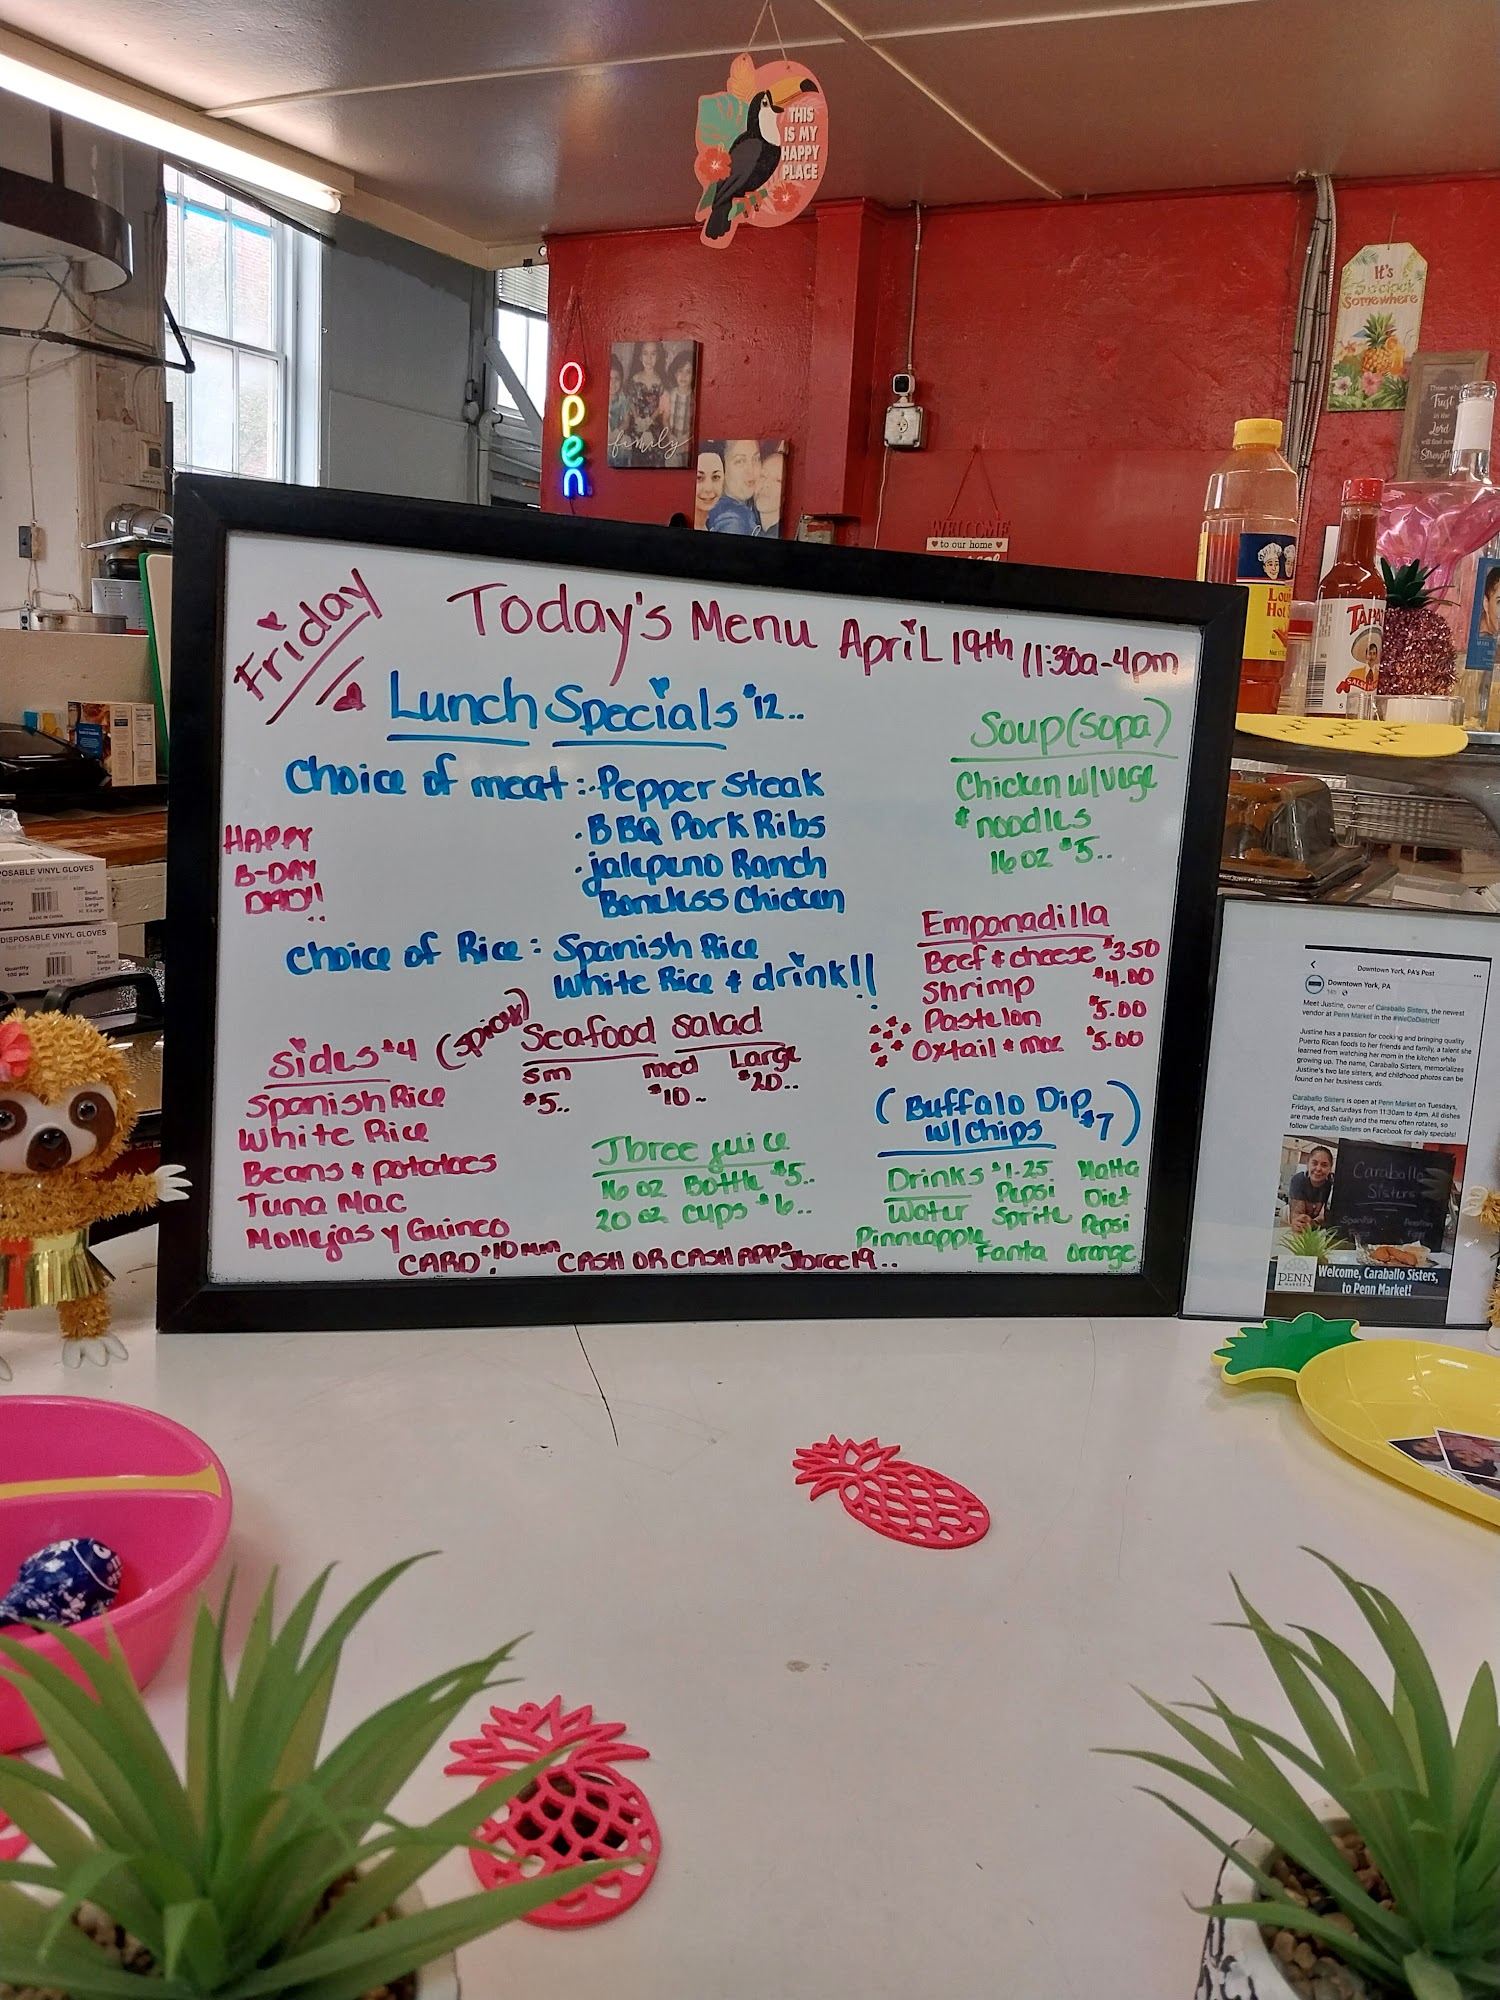 THIS
IS MY
HAPPY
PLACE
It's
Somewhere
Those who
Trust
in the
Lord
will find new
Strength
open
family
WELCOME
to our home
Friday
Today's Menu April 19th 11:30a-4pm
Lunch Specials $12..
Choice of meat: · Pepper Steak
· BBQ Pork Ribs
· jalepeno Ranch
Boneless Chicken
HAPPY
B-DAY
DAD!!
Choice of Rice: Spanish Rice
White Rice & drink!!
Soup (sopa)
Chicken w/vege
& noodles
16 oz $5..
Empanadilla
Beef & cheese $3.50
Shrimp $4.00
Pastelon $5.00
Oxtail & mac $5.00
(Buffalo Dip
w/chips $7)
Sides $4
Spanish Rice
White Rice
Beans & potatoes
Tuna Mac
Mollejas y Guineo
(spicy) Seafood salad
sm med Large
$5.. $10.. $20..
Jbree juice
16 oz Bottle $5..
20 oz cups $6..
Drinks $1.25 Malta
Water Pepsi Diet
Pinneapple Sprite Pepsi
Fanta orange
CARD $10 min CASH OR CASH APP $Jbree19..
POSABLE VINYL GLOVES
DISPOSABLE VINYL GLOVES
Quantity
100 pcs
MADE IN CHINA
Small
Medium
Large
X-Large
Loui
Hot
TAPAT
Downtown York, PA's Post
Downtown York, PA
Meet Justine, owner of Caraballo Sisters, the newest
vendor at Penn Market in the #WeCoDistrict!
Justine has a passion for cooking and bringing quality
Puerto Rican foods to her friends and family, a talent she
learned from watching her mom in the kitchen while
growing up. The name, Caraballo Sisters, memorializes
Justine's two late sisters, and childhood photos can be
found on her business cards.
Caraballo Sisters is open at Penn Market on Tuesdays,
Fridays, and Saturdays from 11:30am to 4pm. All dishes
are made fresh daily and the menu often rotates, so
follow Caraballo Sisters on Facebook for daily specials!
Caraballo
Sisters
PENN
MARKET
Welcome, Caraballo Sisters,
to Penn Market!